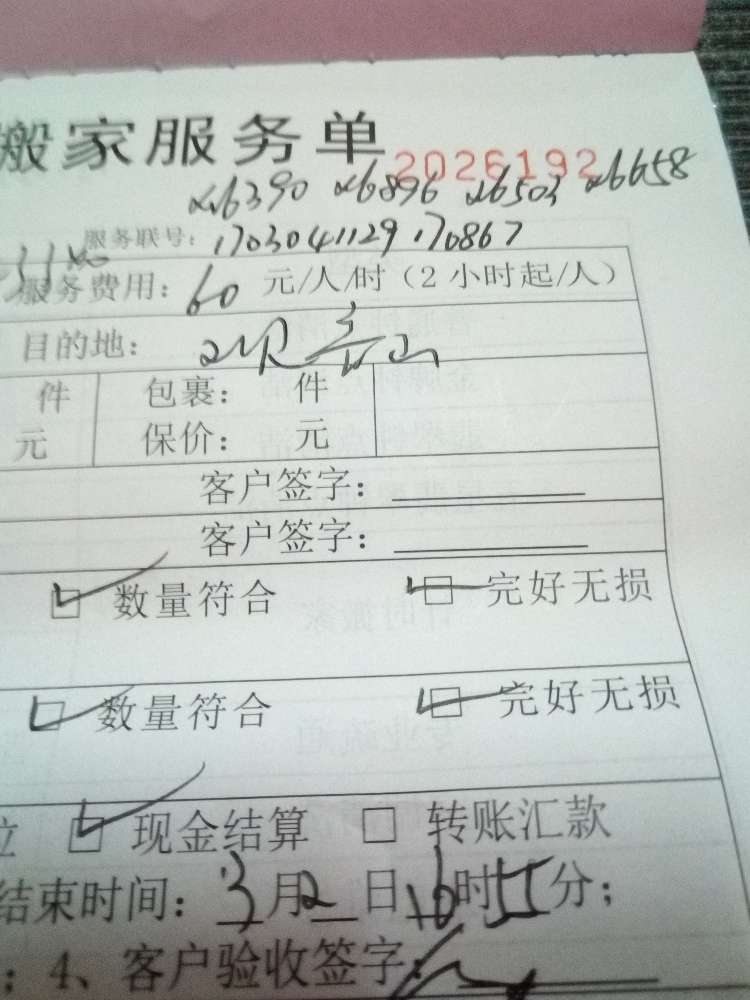 搬家服务单 2026192
26390 26896 26503 26658
服务联号: 1703041129 170867
服务费用: 60 元/人/时（2小时起/人）
目的地:
件 包裹: 件
元 保价: 元
客户签字:
客户签字:
数量符合 完好无损
数量符合 完好无损
位 现金结算 转账汇款
结束时间: 3月2日16时55分;
; 4、客户验收签字: